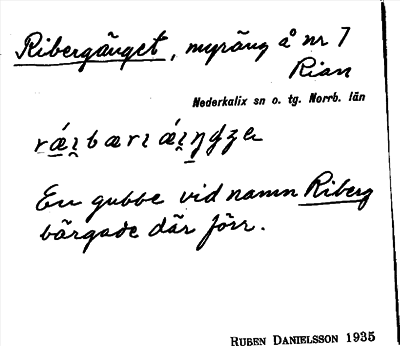 Ribergänget, myräng å nr 7
Rian
Nederkalix sn o. tg. Norrb. län
En gubbe vid namn Riberg
bärgade där förr.
RUBEN DANIELSSON 1935